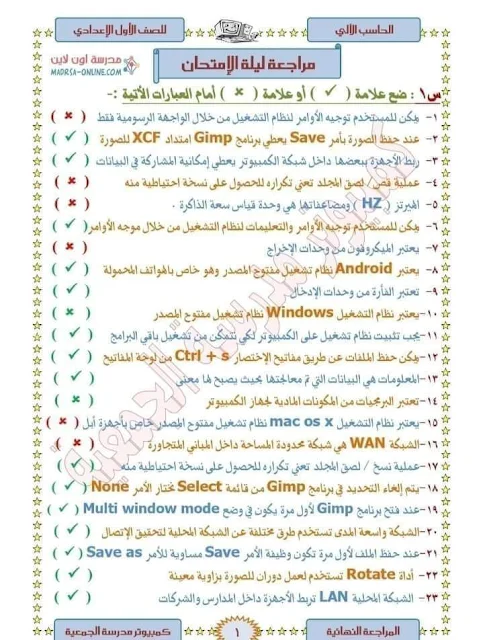 الحاسب الآلي
للصف الأول الإعدادي
مراجعة ليلة الإمتحان
مدرسة اون لاين
MADRSA-ONLINE.COM
س١ : ضع علامة ( ✓ ) أو علامة ( × ) أمام العبارات الآتية :-
١- يمكن للمستخدم توجيه الأوامر لنظام التشغيل من خلال الواجهة الرسومية فقط ( × )
٢- عند حفظ الصورة بأمر Save يعطي برنامج Gimp امتداد XCF للصورة ( ✓ )
٣- ربط الأجهزة ببعضها داخل شبكة الكمبيوتر يعطي إمكانية المشاركة في البيانات ( ✓ )
٤- عملية قص/ لصق المجلد تعني تكراره للحصول على نسخة احتياطية منه ( × )
٥- الهيرتز ( HZ ) ومضاعفاتها هي وحدة قياس سعة الذاكرة . ( × )
٦- يمكن للمستخدم توجيه الأوامر والتعليمات لنظام التشغيل من خلال موجه الأوامر ( ✓ )
٧- يعتبر الميكروفون من وحدات الإخراج ( × )
٨- يعتبر Android نظام تشغيل مفتوح المصدر وهو خاص بالهواتف المحمولة ( ✓ )
٩- تعتبر الفأرة من وحدات الإدخال ( ✓ )
١٠- يعتبر نظام التشغيل Windows نظام تشغيل مفتوح المصدر ( × )
١١- يجب تثبيت نظام تشغيل على الكمبيوتر لكي نتمكن من تشغيل باقي البرامج ( ✓ )
١٢- يمكن حفظ الملفات عن طريق مفاتيح الإختصار Ctrl + s من لوحة المفاتيح ( ✓ )
١٣- المعلومات هي البيانات التي تم معالجتها بحيث يصبح لها معنى ( ✓ )
١٤- تعتبر البرمجيات من المكونات المادية لجهاز الكمبيوتر ( × )
١٥- يعتبر نظام التشغيل mac os x نظام تشغيل مفتوح المصدر خاص بأجهزة أبل ( × )
١٦- الشبكة WAN هي شبكة محدودة المساحة داخل المباني المتجاورة ( × )
١٧- عملية نسخ / لصق المجلد تعني تكراره للحصول على نسخة احتياطية منه ( ✓ )
١٨- يتم إلغاء التحديد في برنامج Gimp من قائمة Select نختار الأمر None ( ✓ )
١٩- عند فتح برنامج Gimp لأول مرة يكون في وضع Multi window mode ( ✓ )
٢٠- الشبكة واسعة المدى تستخدم طرق مختلفة عن الشبكة المحلية لتحقيق الإتصال ( ✓ )
٢١- عند حفظ الملف لأول مرة تكون وظيفة الأمر Save مساوية للأمر Save as ( ✓ )
٢٢- أداة Rotate تستخدم لعمل دوران للصورة بزاوية معينة ( ✓ )
٢٣- الشبكة المحلية LAN تربط الأجهزة داخل المدارس والشركات ( ✓ )
المراجعة النهائية
١
كمبيوتر مدرسة الجمعية